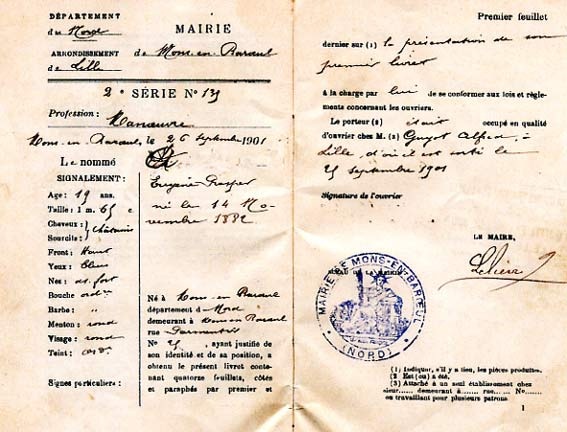 DÉPARTEMENT
du Nord
ARRONDISSEMENT
de Lille
MAIRIE
de Mons-en-Barœul
2e SÉRIE No 139
Profession :
Manœuvre
Mons-en-Barœul, le 26 Septembre 1901
Le nommé
SIGNALEMENT :
Age : 19 ans.
Taille : 1 m. 65 c.
Cheveux :
Sourcils : châtains
Front : Haut
Yeux : Bleus
Nez : as. fort
Bouche ord.
Barbe : "
Menton : rond
Visage : rond
Teint :
Signes particuliers :
Eugène Prosper
né le 14 No-
vembre 1882
Né à Mons-en-Barœul
département d Nord
demeurant à Mons-en-Barœul
rue
No 25, ayant justifié de
son identité et de sa position, a
obtenu le présent livret conte-
nant quatorze feuillets, côtés
et paraphés par premier et
Premier feuillet
dernier sur (1) la présentation de son
premier livret
à la charge par lui de se conformer aux lois et règle-
ments concernant les ouvriers.
Le porteur (2) était occupé en qualité
d'ouvrier chez M. (3) Guyot Alfred, à
Lille, d'où il est sorti le
25 septembre 1901
Signature de l'ouvrier
LE MAIRE,
Lelièvre
MAIRIE DE MONS-EN-BARŒUL
(NORD)
(1) Indiquer, s'il y a lieu, les pièces produites.
(2) Est (ou) a été.
(3) Attaché à un seul établissement chez
sieur...... demeurant à....... rue.... No......
ou travaillant pour plusieurs patrons
1